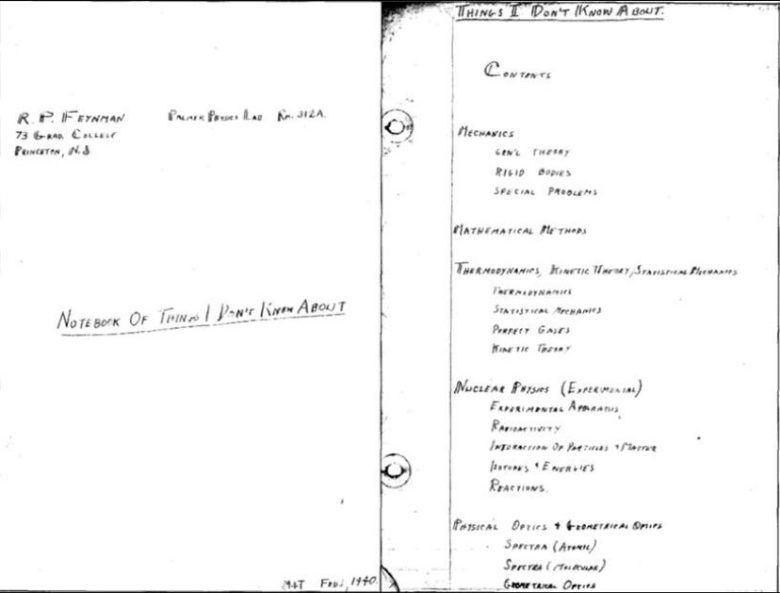 R. P. FEYNMAN PALMER PHYSICS LAB RM. 312A.
73 GRAD. COLLEGE
PRINCETON, N.J
NOTEBOOK OF THINGS I DON'T KNOW ABOUT
1940.
THINGS I DON'T KNOW ABOUT.
CONTENTS
MECHANICS
GEN'L THEORY
RIGID BODIES
SPECIAL PROBLEMS
MATHEMATICAL METHODS
THERMODYNAMICS, KINETIC THEORY, STATISTICAL MECHANICS
THERMODYNAMICS
STATISTICAL MECHANICS
PERFECT GASES
KINETIC THEORY
NUCLEAR PHYSICS (EXPERIMENTAL)
EXPERIMENTAL APPARATUS
RADIOACTIVITY
INTERACTION OF PARTICLES + MATTER
ISOTOPES + ENERGIES
REACTIONS.
PHYSICAL OPTICS + GEOMETRICAL OPTICS
SPECTRA (ATOMIC)
SPECTRA (MOLECULAR)
GEOMETRICAL OPTICS